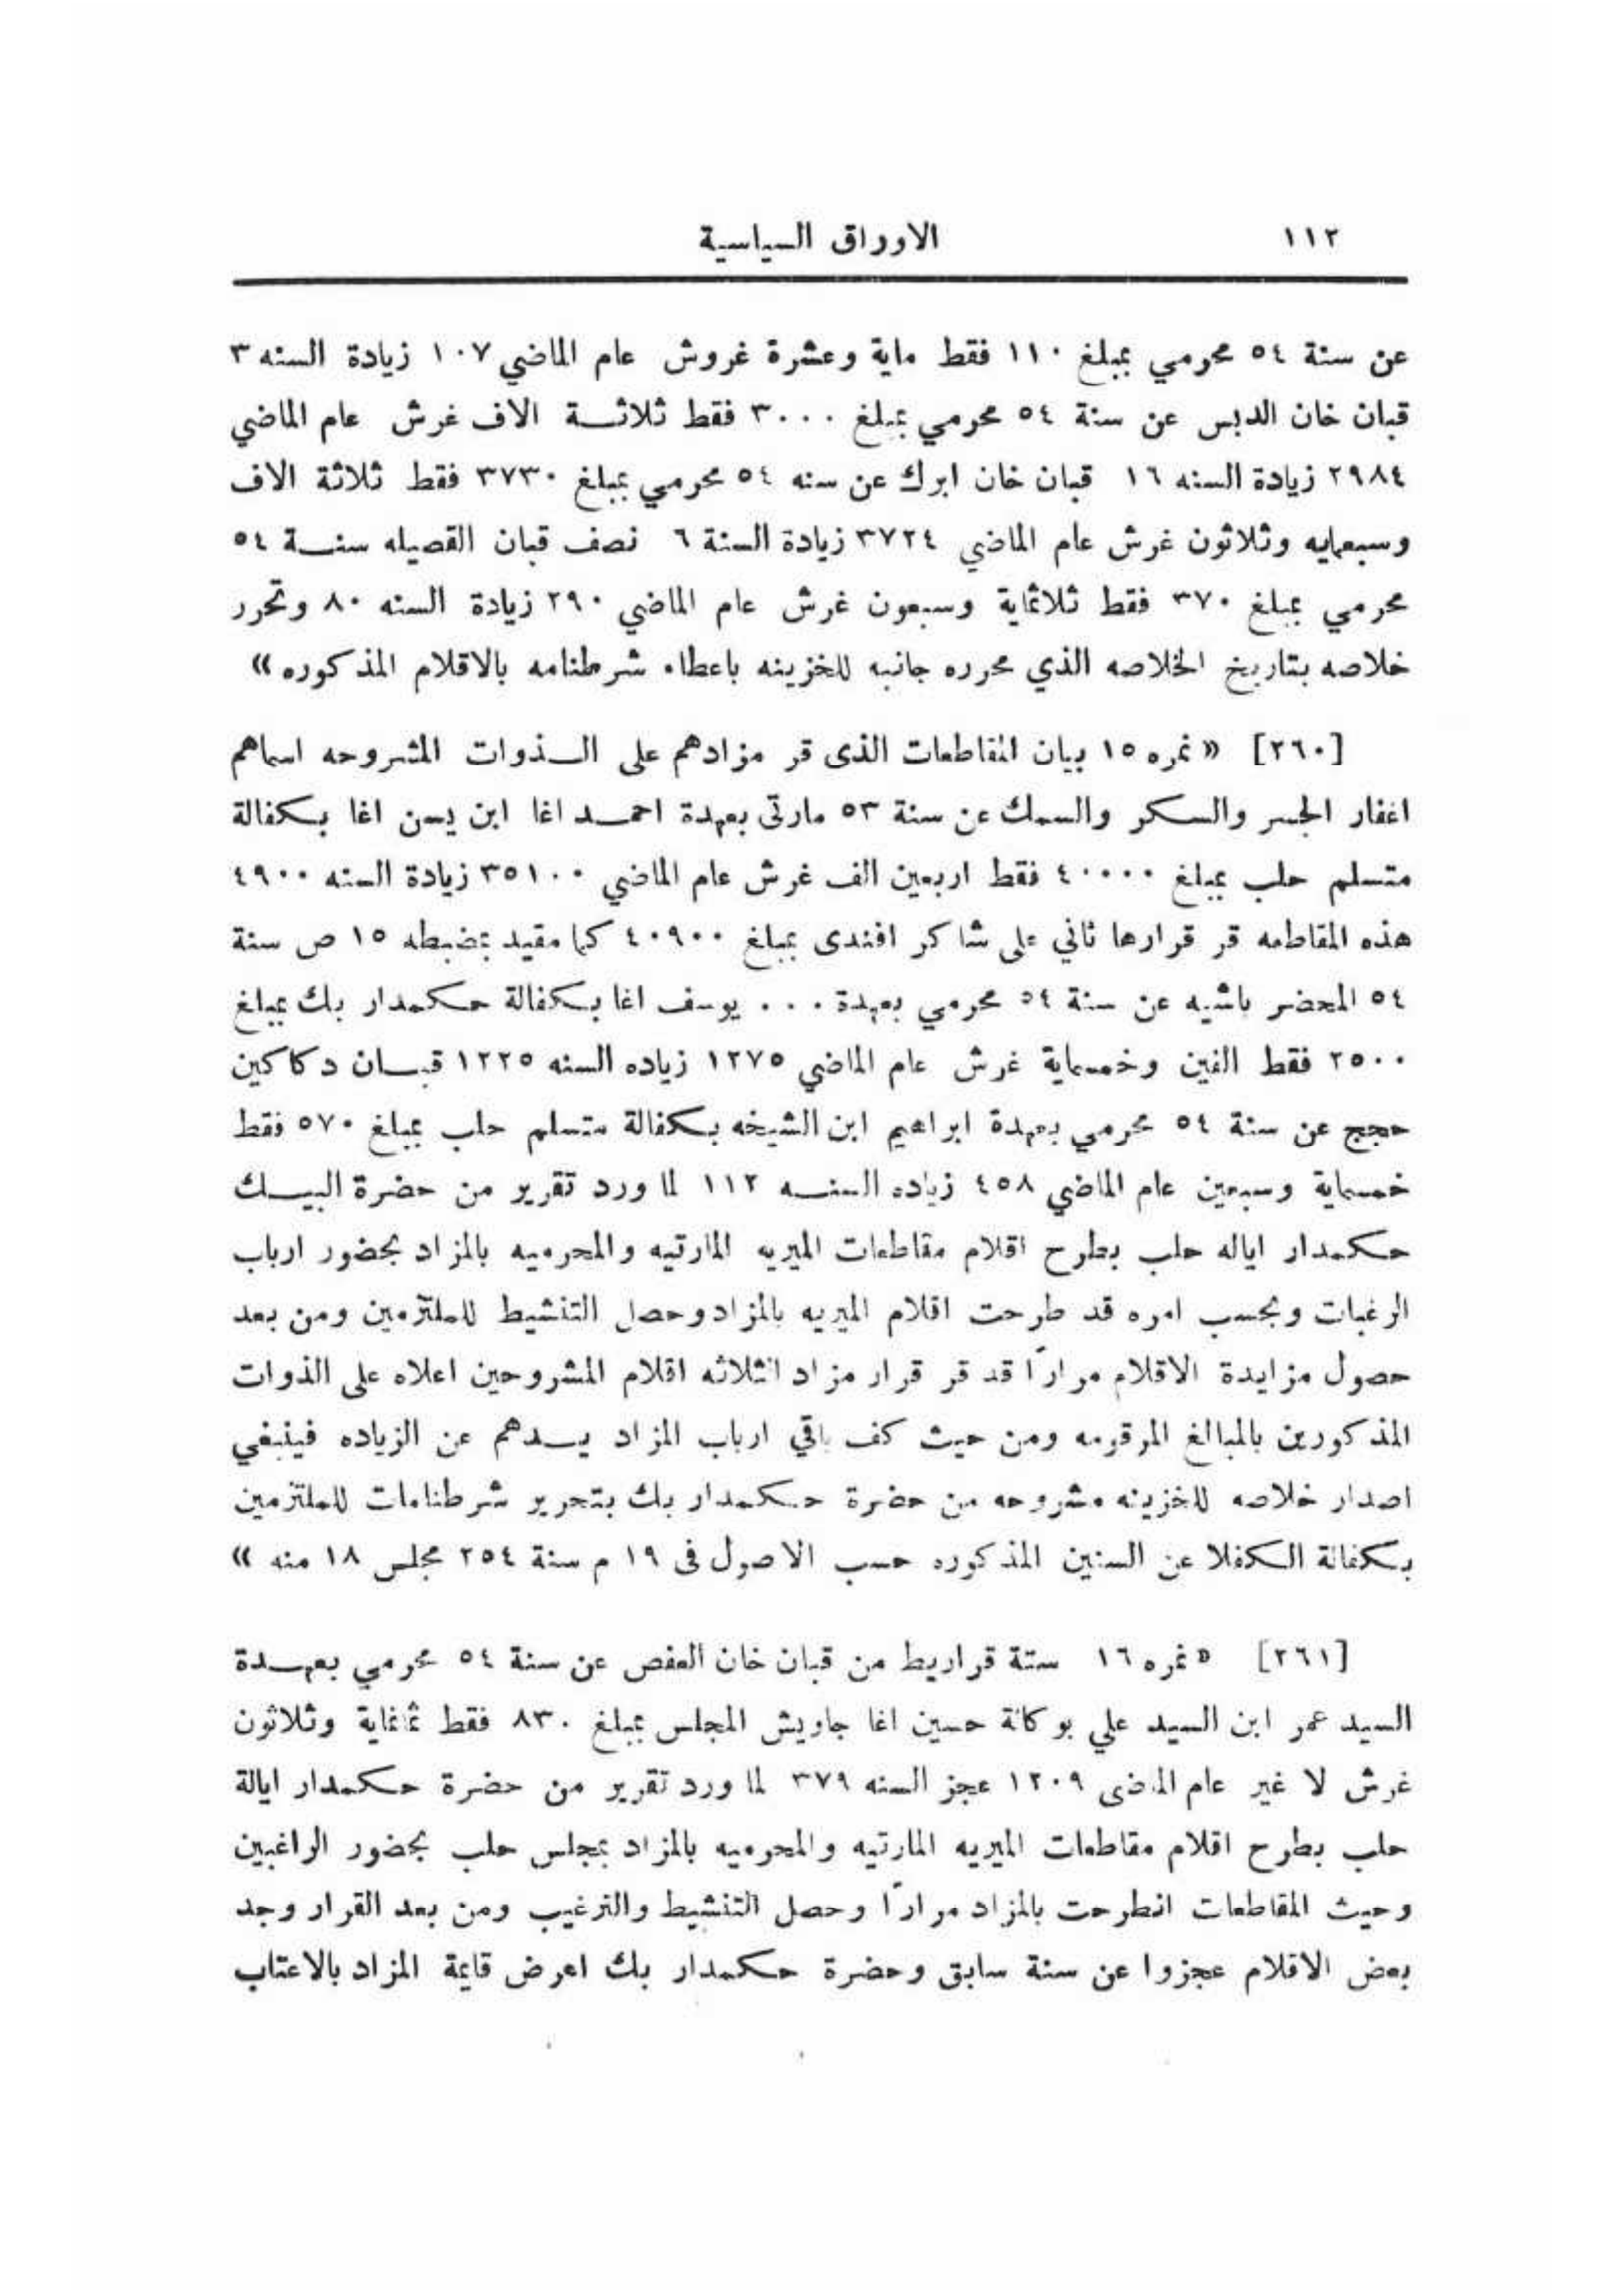 ١١٢ الاوراق السياسية
عن سنة ٥٤ محرمي بمبلغ ١١٠ فقط ماية وعشرة غروش عام الماضي ١٠٧ زيادة السنه ٣
قبان خان الدبس عن سنة ٥٤ محرمي بمبلغ ٣٠٠٠ فقط ثلاثة الاف غرش عام الماضي
٢٩٨٤ زيادة السنه ١٦ قبان خان ابرك عن سنه ٥٤ محرمي بمبلغ ٣٧٣٠ فقط ثلاثة الاف
وسبعمايه وثلاثون غرش عام الماضي ٣٧٢٤ زيادة السنة ٦ نصف قبان القصيله سنة ٥٤
محرمي بمبلغ ٣٧٠ فقط ثلاثماية وسبعون غرش عام الماضي ٢٩٠ زيادة السنه ٨٠ وتحرر
خلاصه بتاريخ الخلاصه الذي محرره جانبه للخزينه باعطاء شرطنامه بالاقلام المذكوره »
[٢٦٠] « نمره ١٥ بيان المقاطعات الذى قر مزادهم على الذوات المشروحه اسماهم
اغفار الجسر والسكر والسمك عن سنة ٥٣ مارتى بعهدة احمد اغا ابن يسن اغا بكفالة
متسلم حلب بمبلغ ٤٠٠٠٠ فقط اربعين الف غرش عام الماضي ٣٥١٠٠ زيادة السنه ٤٩٠٠
هذه المقاطعه قر قرارها ثاني على شاكر افندى بمبلغ ٤٠٩٠٠ كما مقيد بمضبطه ١٥ ص سنة
٥٤ المحضر باشيه عن سنة ٥٤ محرمي بعهدة . . . يوسف اغا بكفالة حكمدار بك بمبلغ
٢٥٠٠ فقط الفين وخمسماية غرش عام الماضي ١٢٧٥ زياده السنه ١٢٢٥ قبان دكاكين
حجج عن سنة ٥٤ محرمي بعهدة ابراهيم ابن الشيخه بكفالة متسلم حلب بمبلغ ٥٧٠ فقط
خمسماية وسبعين عام الماضي ٤٥٨ زياده السنه ١١٢ لما ورد تقرير من حضرة البيك
حكمدار اياله حلب بطرح اقلام مقاطعات الميريه المارتيه والمحرميه بالمزاد بحضور ارباب
الرغبات وبحسب امره قد طرحت اقلام الميريه بالمزاد وحصل التنشيط للملتزمين ومن بعد
حصول مزايدة الاقلام مرارًا قد قر قرار مزاد الثلاثه اقلام المشروحين اعلاه على الذوات
المذكورين بالمباالغ المرقومه ومن حيث كف باقي ارباب المزاد يسدهم عن الزياده فينبغي
اصدار خلاصه للخزينه مشروحه من حضرة حكمدار بك بتحرير شرطنامات للملتزمين
بكفالة الكفلا عن السنين المذكوره حسب الاصول فى ١٩ م سنة ٢٥٤ مجلس ١٨ منه »
[٢٦١] « نمره ١٦ ستة قراريط من قبان خان العفص عن سنة ٥٤ محرمي بعهدة
السيد عمر ابن السيد علي بوكالة حسين اغا جاويش المجلس بمبلغ ٨٣٠ فقط ثمانماية وثلاثون
غرش لا غير عام الماضى ١٢٠٩ عجز السنه ٣٧٩ لما ورد تقرير من حضرة حكمدار ايالة
حلب بطرح اقلام مقاطعات الميريه المارتيه والمحرميه بالمزاد بمجلس حلب بحضور الراغبين
وحيث المقاطعات انطرحت بالمزاد مرارًا وحصل التنشيط والترغيب ومن بعد القرار وجد
بعض الاقلام عجزوا عن سنة سابق وحضرة حكمدار بك اعرض قايمة المزاد بالاعتاب